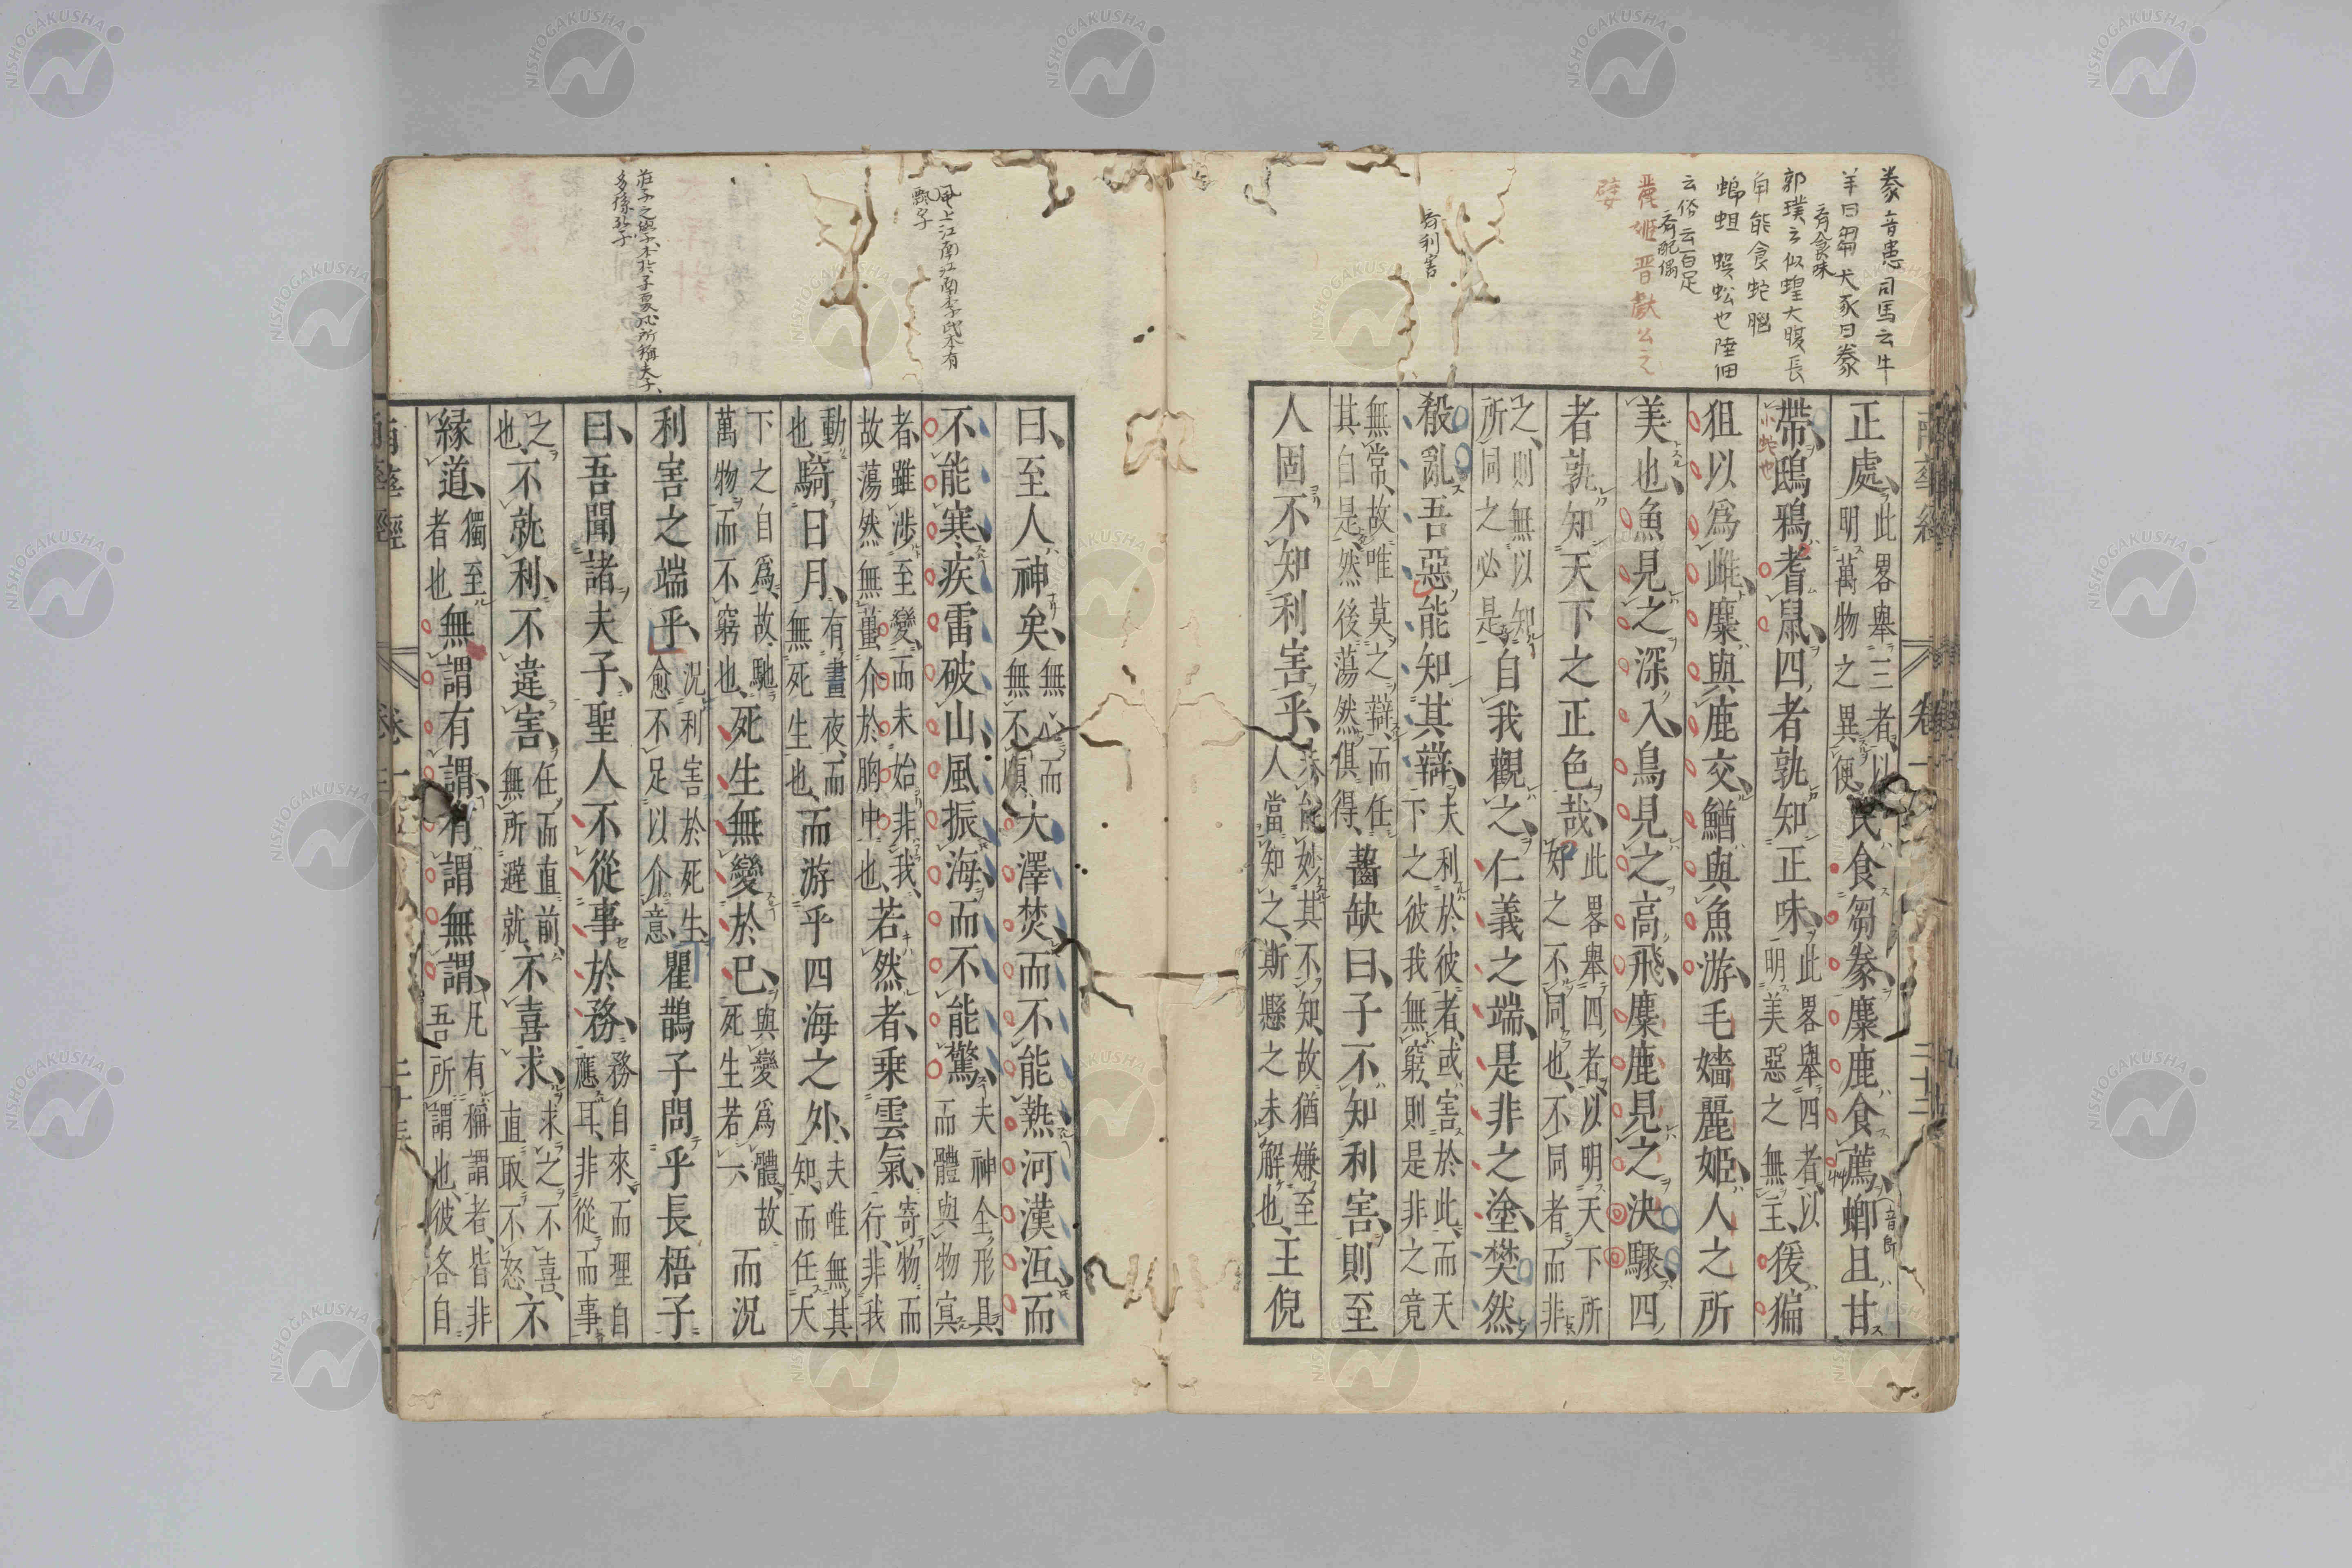 豢音患司馬云牛
羊曰芻犬豕曰豢
右食味
郭璞云似蝗大腹長
角能食蛇腦
蝍蛆 蜈蚣也陸佃
云俗云百足
右配偶
麗姬晋獻公之
嬖
右利害
正處、此畧舉三者、以明萬物之異便、民食芻豢、麋鹿食薦、蝍音即且甘
帶、小蛇也鴟鴉耆鼠、四者孰知正味、此畧舉四者、以明美惡之無主、猨猵
狙以爲雌、麋與鹿交、鰌與魚游、毛嬙麗姬、人之所
美也、魚見之深入、鳥見之高飛、麋鹿見之決驟、四
者孰知天下之正色哉、此畧舉四者、以明天下所好之不同也、不同者而非
之、則無以知所同之必是、自我觀之、仁義之端、是非之塗、樊然
殽亂、吾惡能知其辯、夫利於彼者、或害於此、而天下之彼我無窮、則是非之竟
無常、故唯莫之辯、而任其自是、然後蕩然俱得、齧缺曰、子不知利害、則至
人固不知利害乎、未能妙其不知、故猶嫌至人當知之、斯懸之未解也、王倪
風上江南江南李氏本有
飄字
莊子之學本於子夏、所稱夫子、
多係孔子
曰、至人神矣、無心而無不順、大澤焚而不能熱、河漢沍而
不能寒、疾雷破山、風振海、而不能驚、夫神全形具而體與物冥
者、雖涉至變、而未始非我、故蕩然無蠆介於胸中也、若然者、乗雲氣、寄物而行、非我
動也、騎日月、有晝夜、而無死生也、而游乎四海之外、夫唯無其知、而任天
下之自爲、故馳萬物而不窮也、死生無變於已、與變爲體、故死生若一、而況
利害之端乎、況利害於死生、愈不足以介意、瞿鵲子問乎長梧子
曰、吾聞諸夫子、聖人不從事於務、務自來、而理自應耳、非從而事
之也、不就利、不違害、任而直前、無所避就、不喜求、求之不喜、直取不怒、不
縁道、獨至者也無謂有謂、有謂無謂、凡有稱謂者、皆非吾所謂也、彼各自
南華經
卷一
NISHOGAKUSHA